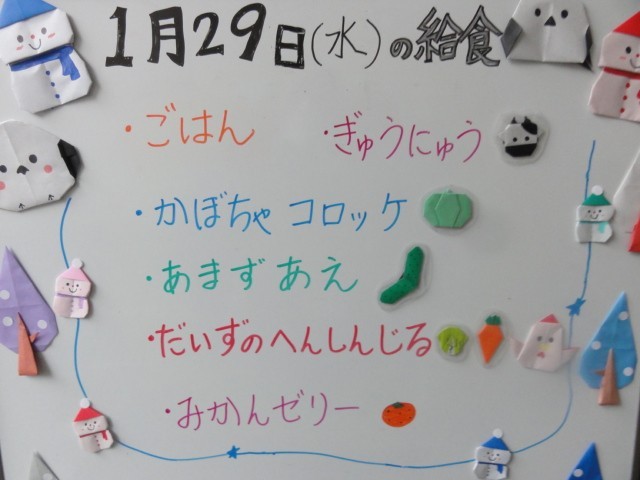 1月29日(水)の給食
・ごはん ・ぎゅうにゅう
・かぼちゃコロッケ
・あまずあえ
・だいずのへんしんじる
・みかんゼリー